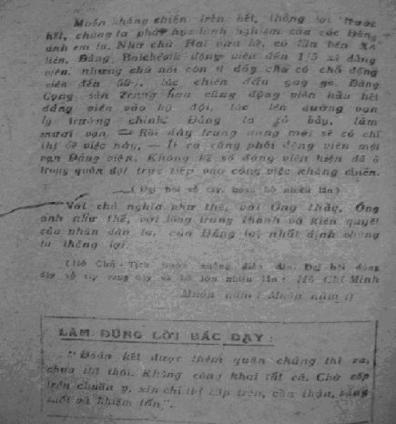 Muốn kháng chiến trên hết, thắng lợi trước
hết, chúng ta phải học kinh nghiệm của các Đảng
anh em ta. Như chú Hai vừa kể, có lần bên Xô
liên, Đảng động viên đến 1/5 số đảng
viên, nhưng chú nói còn ít đấy chỗ có chỗ động
viên đến 50%, lúc chiến đấu gay go. Đảng
Cộng sản Trung hoa cũng động viên hầu hết
đảng viên vào bộ đội, lúc lên đường vạn
lý trường chinh. Đảng ta bây, tám
mươi vạn — Rồi đây trung ương mới sẽ có chỉ
thị về việc này, — Ít ra cũng phải động viên một
vạn Đảng viên. Không kể số đảng viên hiện đã ở
trong quân đội trực tiếp vào công việc kháng chiến.
(Đại hội vỗ tay, hoan hô nhiều lần)
Với chủ nghĩa như thế, với Ông thầy, Ông
anh như thế, với lòng trung thành và kiên quyết
của nhân dân ta, của Đảng ta, nhất định chúng
ta thắng lợi.
(Hồ Chủ - Tịch bước xuống diễn đàn. Đại hội đứng
dậy vỗ tay vang dậy và hô lớn nhiều lần : Hồ Chí Minh
Muôn năm ! Muôn năm !)
LÀM ĐÚNG LỜI BÁC DẠY :
"Đoàn kết được thêm quần chúng thì ra,
chưa thì thôi. Không công khai tất cả. Chờ cấp
trên chuẩn y, xin chỉ thị cấp trên, cẩn thận, sáng
suốt và khiêm tốn".